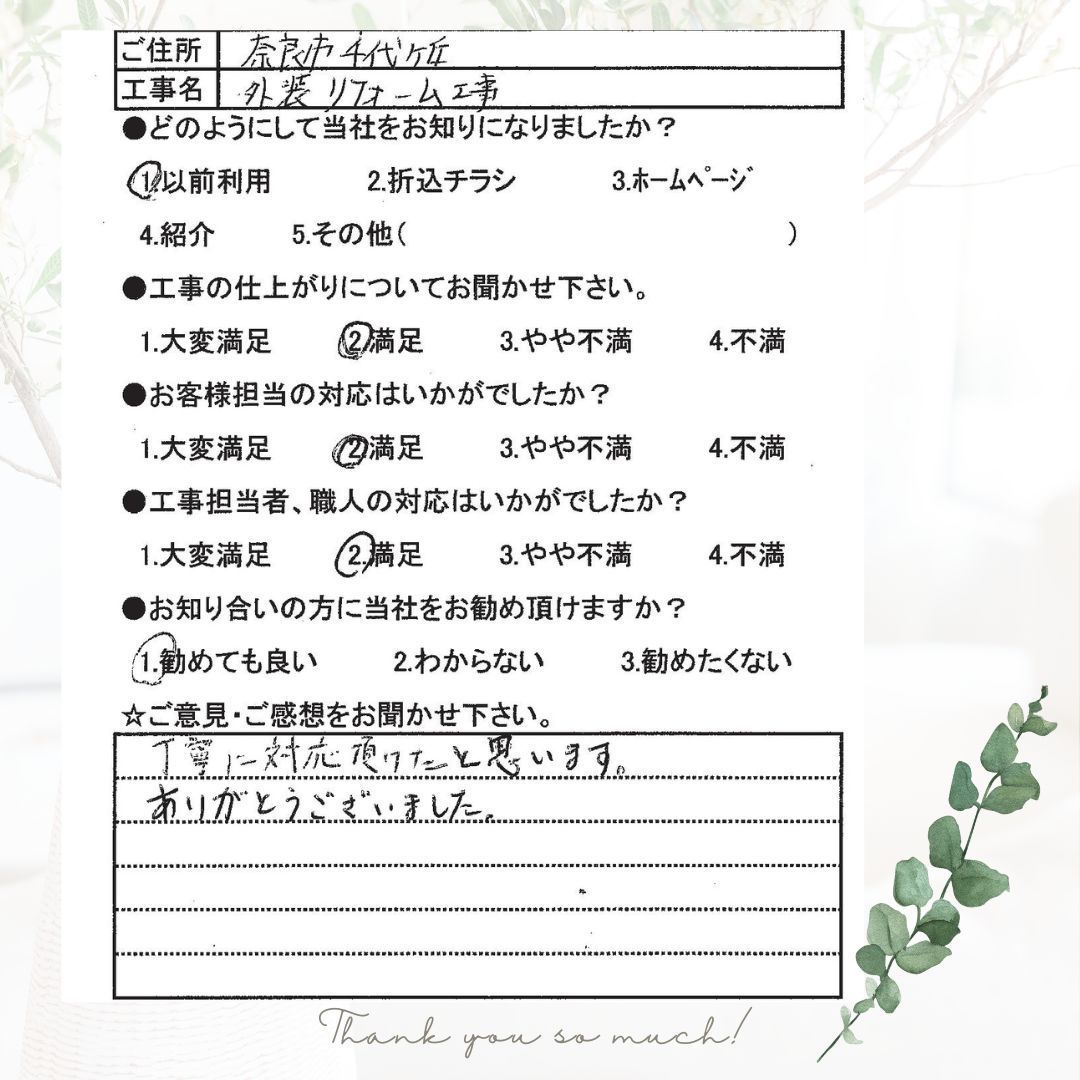 ご住所 奈良市千代ヶ丘
工事名 外装リフォーム工事
●どのようにして当社をお知りになりましたか？
1.以前利用 2.折込チラシ 3.ﾎｰﾑﾍﾟｰｼﾞ
4.紹介 5.その他( )
●工事の仕上がりについてお聞かせ下さい。
1.大変満足 2.満足 3.やや不満 4.不満
●お客様担当の対応はいかがでしたか？
1.大変満足 2.満足 3.やや不満 4.不満
●工事担当者、職人の対応はいかがでしたか？
1.大変満足 2.満足 3.やや不満 4.不満
●お知り合いの方に当社をお勧め頂けますか？
1.勧めても良い 2.わからない 3.勧めたくない
☆ご意見・ご感想をお聞かせ下さい。
丁寧に対応頂けたと思います。
ありがとうございました。
Thank you so much!